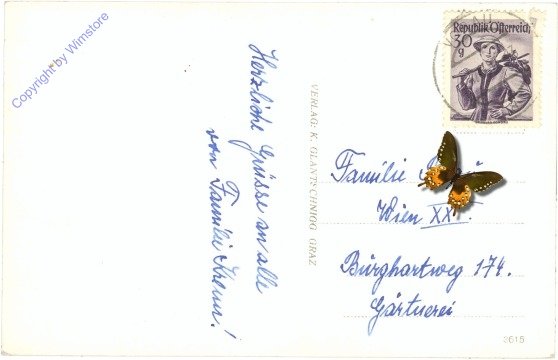 Copyright by Wimstore
Herzliche Grüsse an alle
von Familie Krenn!
VERLAG: K. GLANTSCHNIGG GRAZ
Republik Österreich
30
g
Familie
Wien XX.
Bürghartweg 174.
Gärtnerei
2615